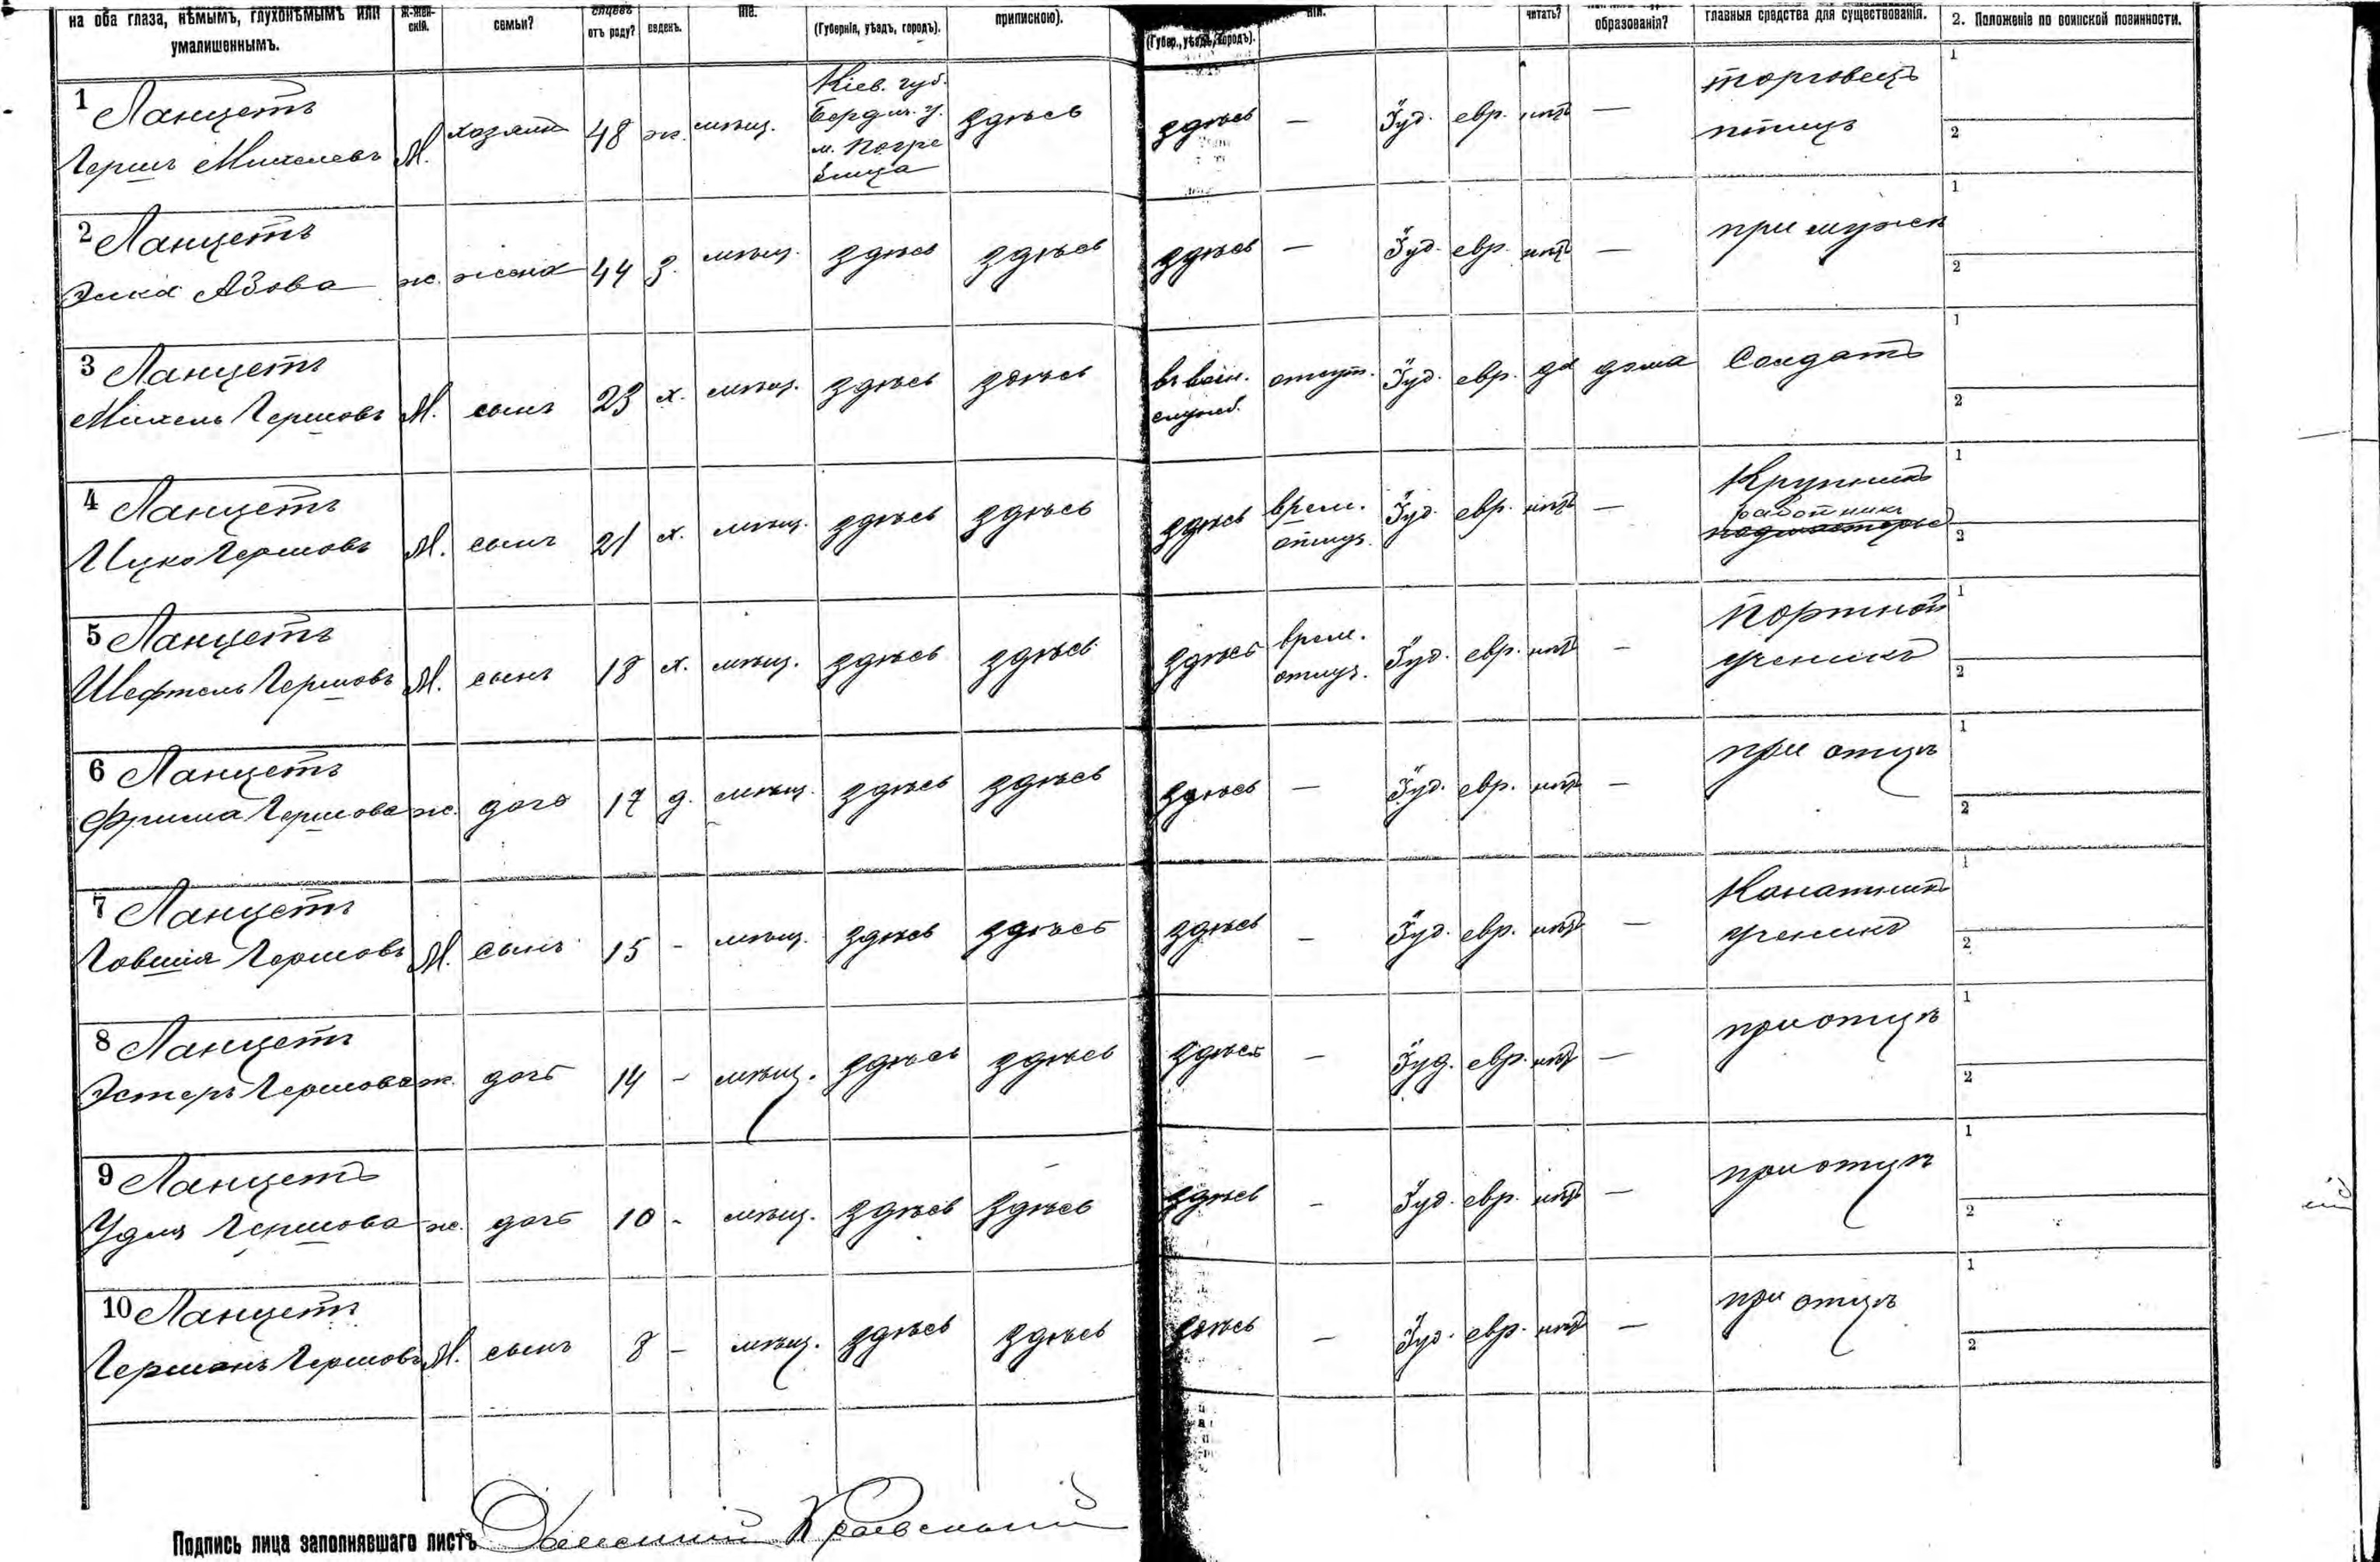 на оба глаза, нѣмымъ, глухонѣмымъ или
умалишеннымъ.
Ж-жен-
скій.
семьи?
сяцевъ
отъ роду?
веденъ.
ніе.
(Губернія, уѣздъ, городъ).
припискою).
(Губер., уѣздъ, городъ).
нія.
читать?
образованія?
главныя средства для существованія.
2. Положеніе по воинской повинности.
1 Ланцетъ
Гершъ Михелевъ М. хозяинъ 48 ж. мѣщ.
Кіев. губ.
Бердич. у.
м. Погре
бища
здѣсь здѣсь — Іуд. евр. нѣтъ —
торговецъ
птицъ
1
2
2 Ланцетъ
Элка Абова ж. жена 44 з. мѣщ. здѣсь здѣсь здѣсь — Іуд. евр. нѣтъ — при мужѣ
1
2
3 Ланцетъ
Михель Гершовъ М. сынъ 23 х. мѣщ. здѣсь здѣсь
въ воин.
служб.
отсут. Іуд. евр. да дома Солдатъ
1
2
4 Ланцетъ
Ицко Гершовъ М. сынъ 21 х. мѣщ. здѣсь здѣсь здѣсь
врем.
отлуч.
Іуд. евр. нѣтъ —
Крупникъ
работникъ
подмастерье
1
2
5 Ланцетъ
Шефтель Гершовъ М. сынъ 18 х. мѣщ. здѣсь здѣсь здѣсь
врем.
отлуч.
Іуд. евр. нѣтъ —
Портной
ученикъ
1
2
6 Ланцетъ
Фрима Гершова ж. дочь 17 д. мѣщ. здѣсь здѣсь здѣсь — Іуд. евр. нѣтъ — при отцѣ
1
2
7 Ланцетъ
Говшія Гершовъ М. сынъ 15 - мѣщ. здѣсь здѣсь здѣсь — Іуд. евр. нѣтъ —
Канатникъ
ученикъ
1
2
8 Ланцетъ
Эстеръ Гершова ж. дочь 14 - мѣщ. здѣсь здѣсь здѣсь — Іуд. евр. нѣтъ — при отцѣ
1
2
9 Ланцетъ
Удля Гершова ж. дочь 10 - мѣщ. здѣсь здѣсь здѣсь - Іуд. евр. нѣтъ — при отцѣ
1
2
10 Ланцетъ
Гершонъ Гершовъ М. сынъ 8 - мѣщ. здѣсь здѣсь здѣсь — Іуд. евр. нѣтъ — при отцѣ
1
2
Подпись лица заполнявшаго листъ